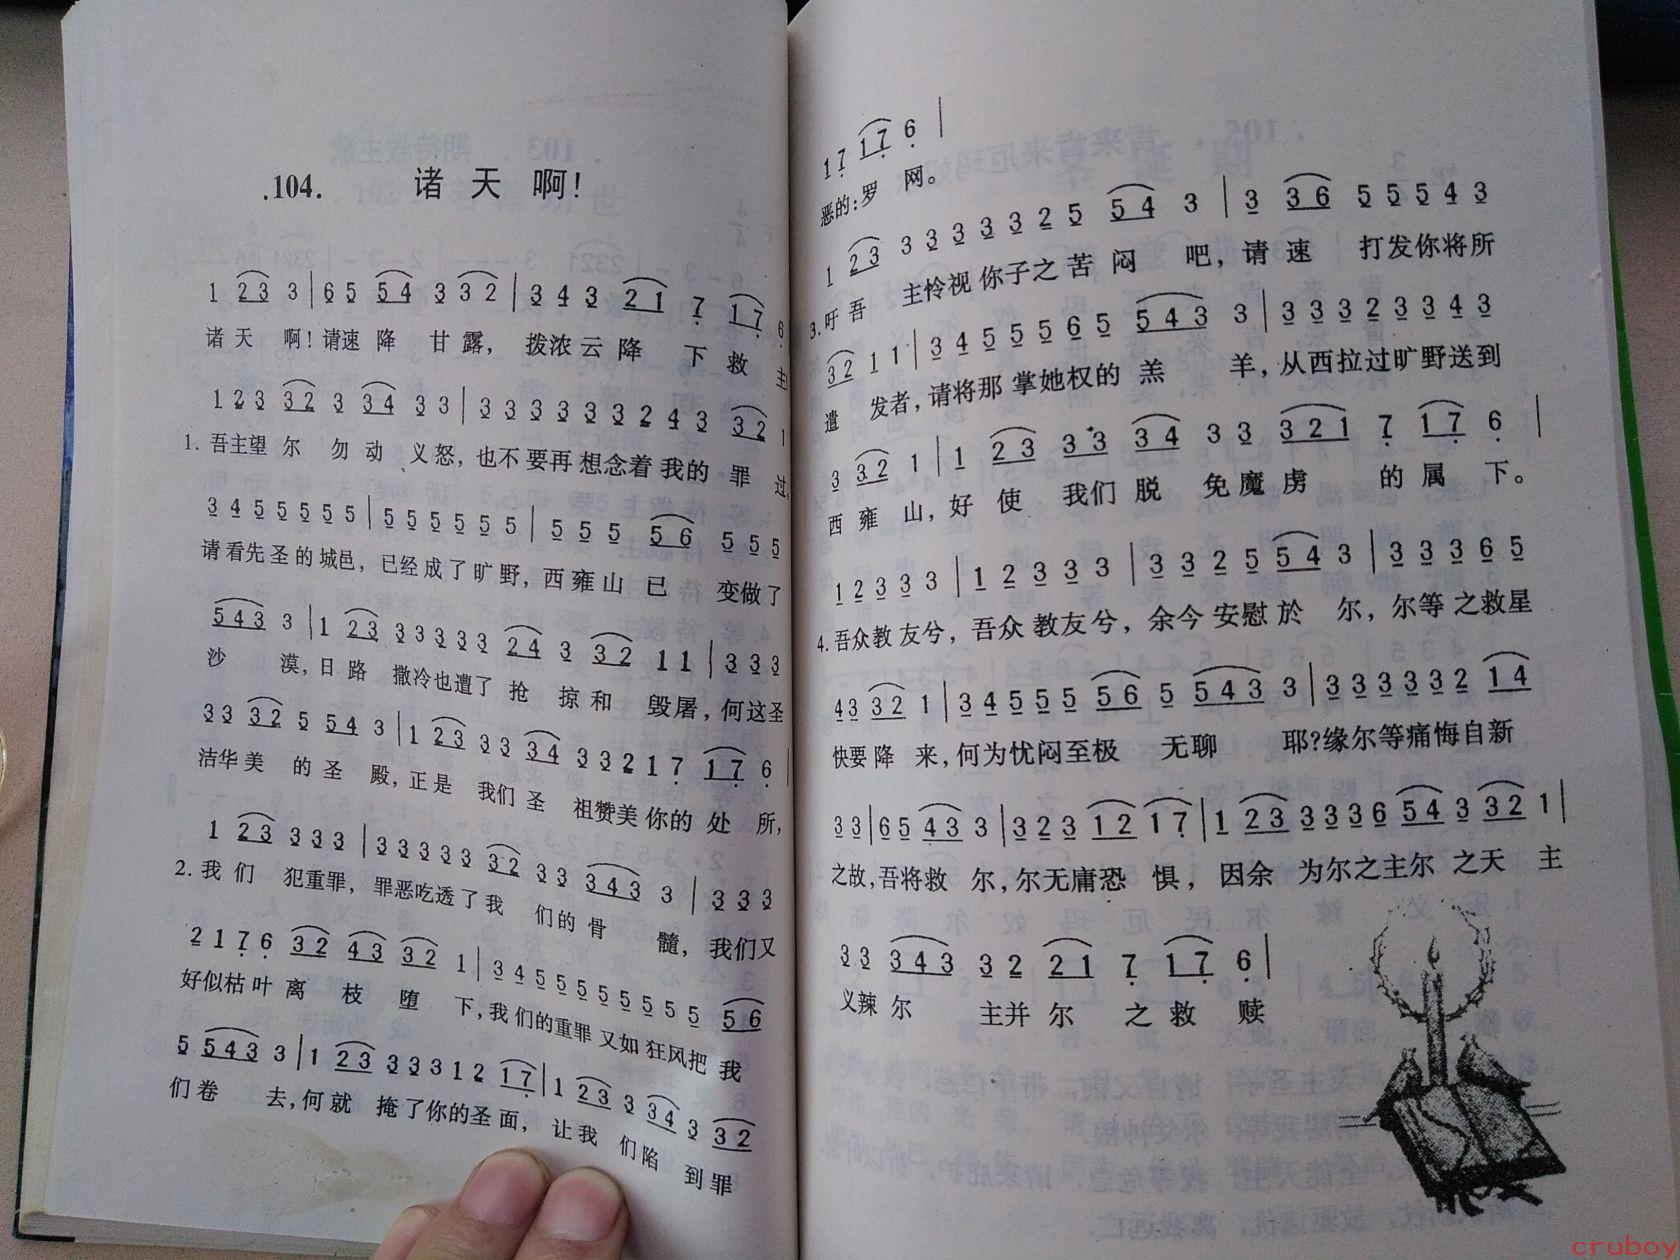 .104. 诸天啊!
1 23 3 | 65 54 332 | 343 21 7 17 6
诸天 啊!请速降 甘露, 拨浓云降 下救主
123 32 3 34 33 | 333333243 32 1
1.吾主望尔 勿动 义怒,也不要再想念着我的罪过,
3455555 | 555555 | 555 56 555
请看先圣的城邑,已经成了旷野,西雍山已 变做了
543 3 | 1 23 33333 24 3 32 11 | 333
沙 漠,日路 撒冷也遭了抢 掠和 毁屠,何这圣
33 32 5 54 3 | 1 23 33 34 33217 17 6 |
洁华美 的圣 殿,正是 我们圣 祖赞美你的处所,
1 23 333 | 33333 32 33 343 3 | 333
2.我们 犯重罪,罪恶吃透了我 们的骨 髓,我们又
2176 32 43 32 1 | 3455555555 56
好似枯叶离 枝堕 下,我们的重罪又如狂风把我
5 543 3 | 1 23 33312 17 | 1 23 3 34 3 32
们卷 去,何就 掩了你的圣面,让我 们陷 到罪
17 17 6 |
恶的:罗 网。
1 23 3333325 54 3 | 3 36 55543
3.吁吾 主怜视你子之苦闷 吧,请速 打发你将所
32 11 | 3455565 543 3 | 33323343
遣 发者,请将那掌她权的羔 羊,从西拉过旷野送到
3 32 1 | 1 23 33 34 33 321 7 17 6 |
西雍 山,好使 我们脱 免魔虏 的属 下。
12333 | 12333 | 3325 54 3 | 33365
4.吾众教友兮,吾众教友兮,余今安慰於 尔,尔等之救星
43 32 1 | 34555 56 5 543 3 | 333332 14
快要降 来,何为忧闷至极 无聊 耶?缘尔等痛悔自新
33 | 65 43 3 | 323 12 17 | 1 23 3336 54 3 32 1 |
之故,吾将救 尔,尔无庸恐 惧, 因余 为尔之主尔 之天 主
33 343 32 21 7 17 6 |
义辣尔 主并尔 之救 赎
cruboy